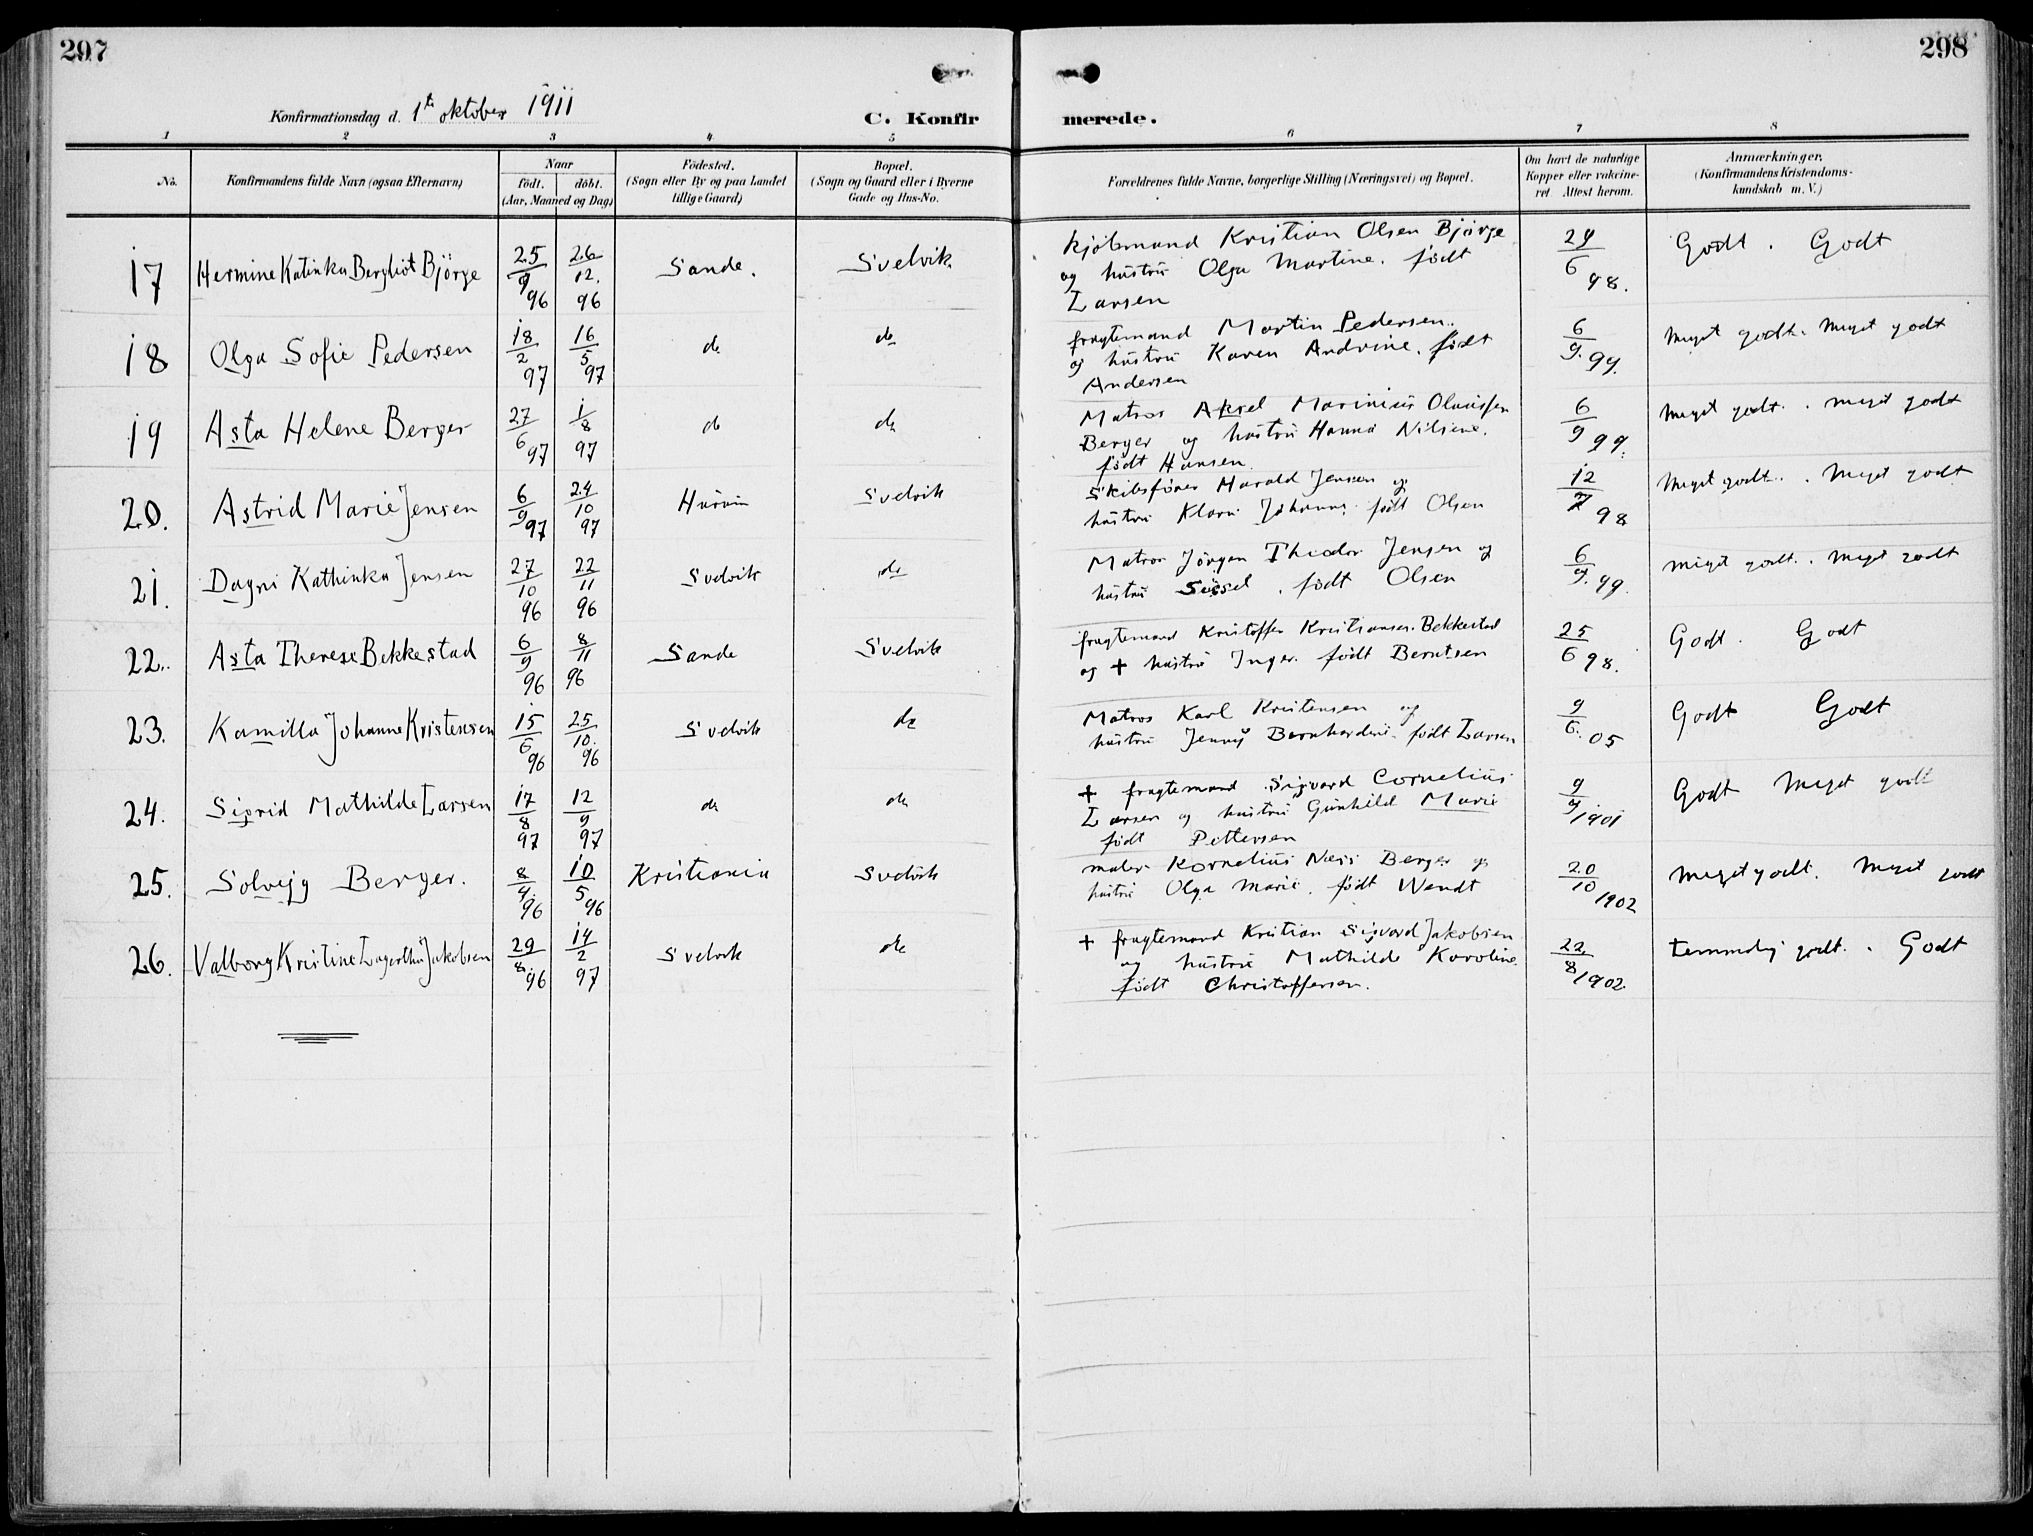 297
298
Konfirmationsdag d. 1te oktober 1911
C. Konfirmerede.
1 2 3 4 5 6 7 8
No.
Konfirmandens fulde Navn (ogsaa Efternavn)
Naar
födt. döbt.
(Aar, Maaned og Dag)
Födested.
(Sogn eller By og paa Landet
tillige Gaard)
Bopæl.
(Sogn og Gaard eller i Byerne
Gade og Hus-No.
Forældrenes fulde Navne, borgerlige Stilling (Næringsvei) og Bopæl.
Om havt de naturlige
Kopper eller vakcine-
ret. Attest herom.
Anmærkninger.
(Konfirmandens Kristendoms-
kundskab m. V.)
17 Hermine Katinka Bergliot Björge 25/9 96 26/12. 96 Sande. Svelvik
kjöbmand Kristian Olsen Björge
og hustru Olga Martine. født
Larsen
24/6 98. Godt. Godt
18 Olga Sofie Pedersen 18/2 97 16/5 97 do do
fragtemand Martin Pedersen.
og hustru Karen Andrine. født
Andersen
6/9. 99. Meget godt. Meget godt
19 Asta Helene Berger 27/6 97 1/8 97 do do
Matros Aksel Marinius Olaussen
Berger og hustru Hanna Nilsine.
født Hansen.
6/9 99. Meget godt. Meget godt
20. Astrid Marie Jensen 6/9 97 24/10 97 Hurum Svelvik
Skibsförer Harald Jensen og
hustru Klara Johanne født Olsen
12/7 98 Meget godt. Meget godt
21. Dagni Kathinka Jensen 27/10 96 22/11 96 Svelvik do
Matros Jörgen Theodor Jensen og
hustru Sissel. født Olsen
6/9. 99. Meget godt. Meget godt
22. Asta Therese Bekkestad 6/9 96 8/11 96 Sande Svelvik
fragtemand Kristoffer Kristiansen Bekkestad
og + hustru Inger. født Berntsen
25/6 98. Godt. Godt
23. Kamilla Johanne Kristensen 15/6 96 25/10. 96 Svelvik do
Matros Karl Kristensen og
hustru Jenny Bernhardine født Larsen
9/6. 05 Godt Godt
24. Sigrid Mathilde Larsen 17/8 97 12/9 97 do do
+ fragtemand Sigvard Cornelius
Larsen og hustru Gunhild Marie
født Pettersen
9/9 1901 Godt Meget godt
25. Solveig Berger. 8/4. 96 10/5 96 Kristiania Svelvik
maler Kornelius Næss Berger og
hustru Olga Marie. født Wendt
20/10 1902 Meget godt. Meget godt
26. Valborg Kristine Lagertha Jakobsen 29/8. 96 14/2 97 Svelvik do
+ fragtemand Kristian Sigvard Jakobsen
og hustru Mathilde Karoline.
født Christoffersen.
22/8 1902. temmelig godt. Godt